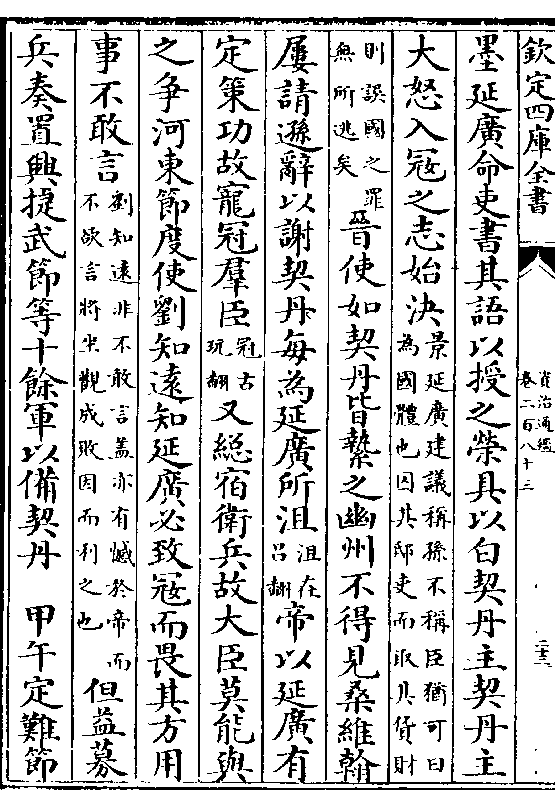 欽定四庫全書
資治通鑑
卷二百八十三
二十三
墨延廣命吏書其語以授之榮具以白契丹主契丹主
大怒入冦之志始決景延廣建議稱孫不稱臣猶可曰
為國體也因其邸吏而取其貨財
則誤國之罪
無所逃矣晉使如契丹皆縶之幽州不得見桑維翰
屢請遜辭以謝契丹每為延廣所沮沮在
吕翻帝以延廣有
定策功故寵冠羣臣冠古
玩翻又緫宿衛兵故大臣莫能與
之争河東節度使劉知遠知延廣必致冦而畏其方用
事不敢言劉知遠非不敢言蓋亦有憾於帝而
不欲言將坐觀成敗因而利之也但益募
兵奏置興捷武節等十餘軍以備契丹　甲午定難節